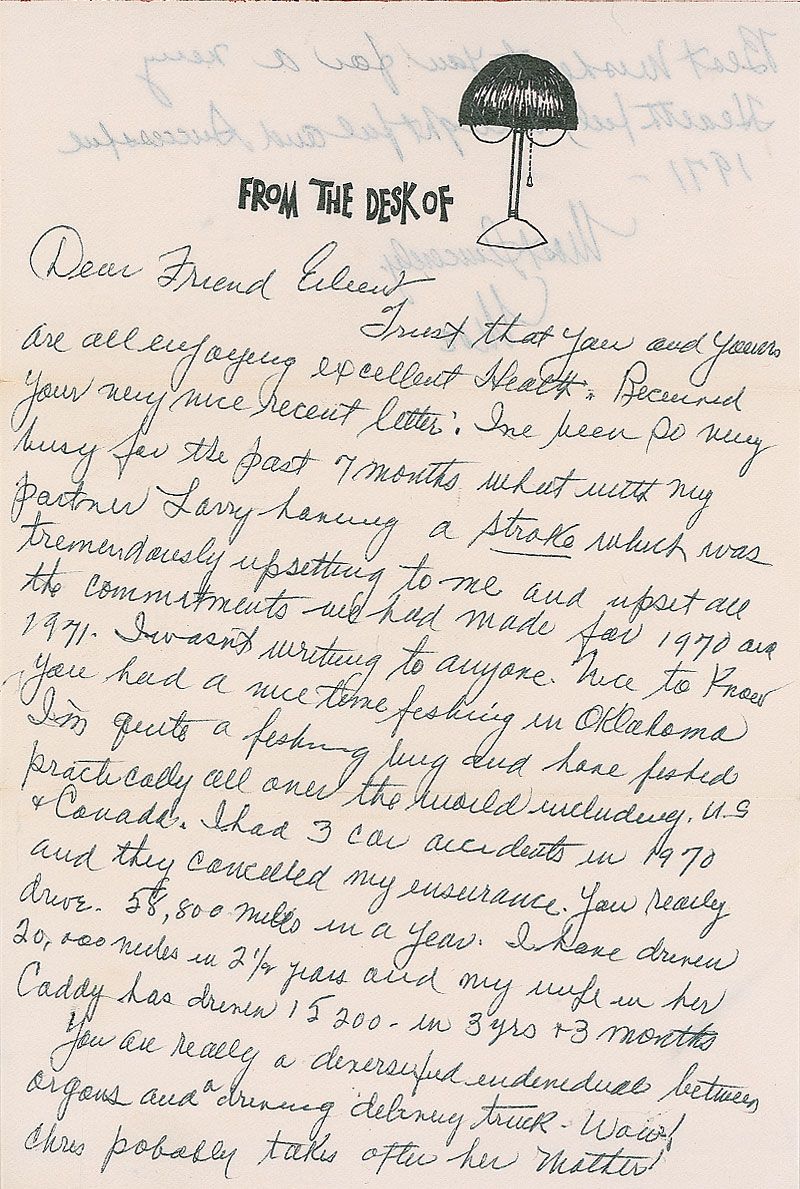 FROM THE DESK OF
Dear Friend Eibent
Trust that you and yours
are all enjoying excellent Health. Received
your very nice recent letter. I've been so very
busy for the past 7 months what with my
partner Larry having a stroke which was
tremendously upsetting to me and upset all
the commitments we had made for 1970 and
1971. I wasn't writing to anyone. Nice to Know
you had a nice time fishing in Oklahoma
I'm quite a fishing bug and have fished
practically all over the world including. U.S
& Canada. I had 3 car accidents in 1970
and they cancelled my insurance. You really
drive. 58,800 miles in a year. I have driven
20,000 miles in 2 1/2 years and my wife in her
Caddy has driven 15200 - in 3 yrs + 3 months
You are really a diversified individual between
organs and a driving delivery truck - Wow!
Chris probably takes after her Mother!
Best Wishes to you for a very
Healthful, and Successful
1971 -
Most Sincerely
Moe